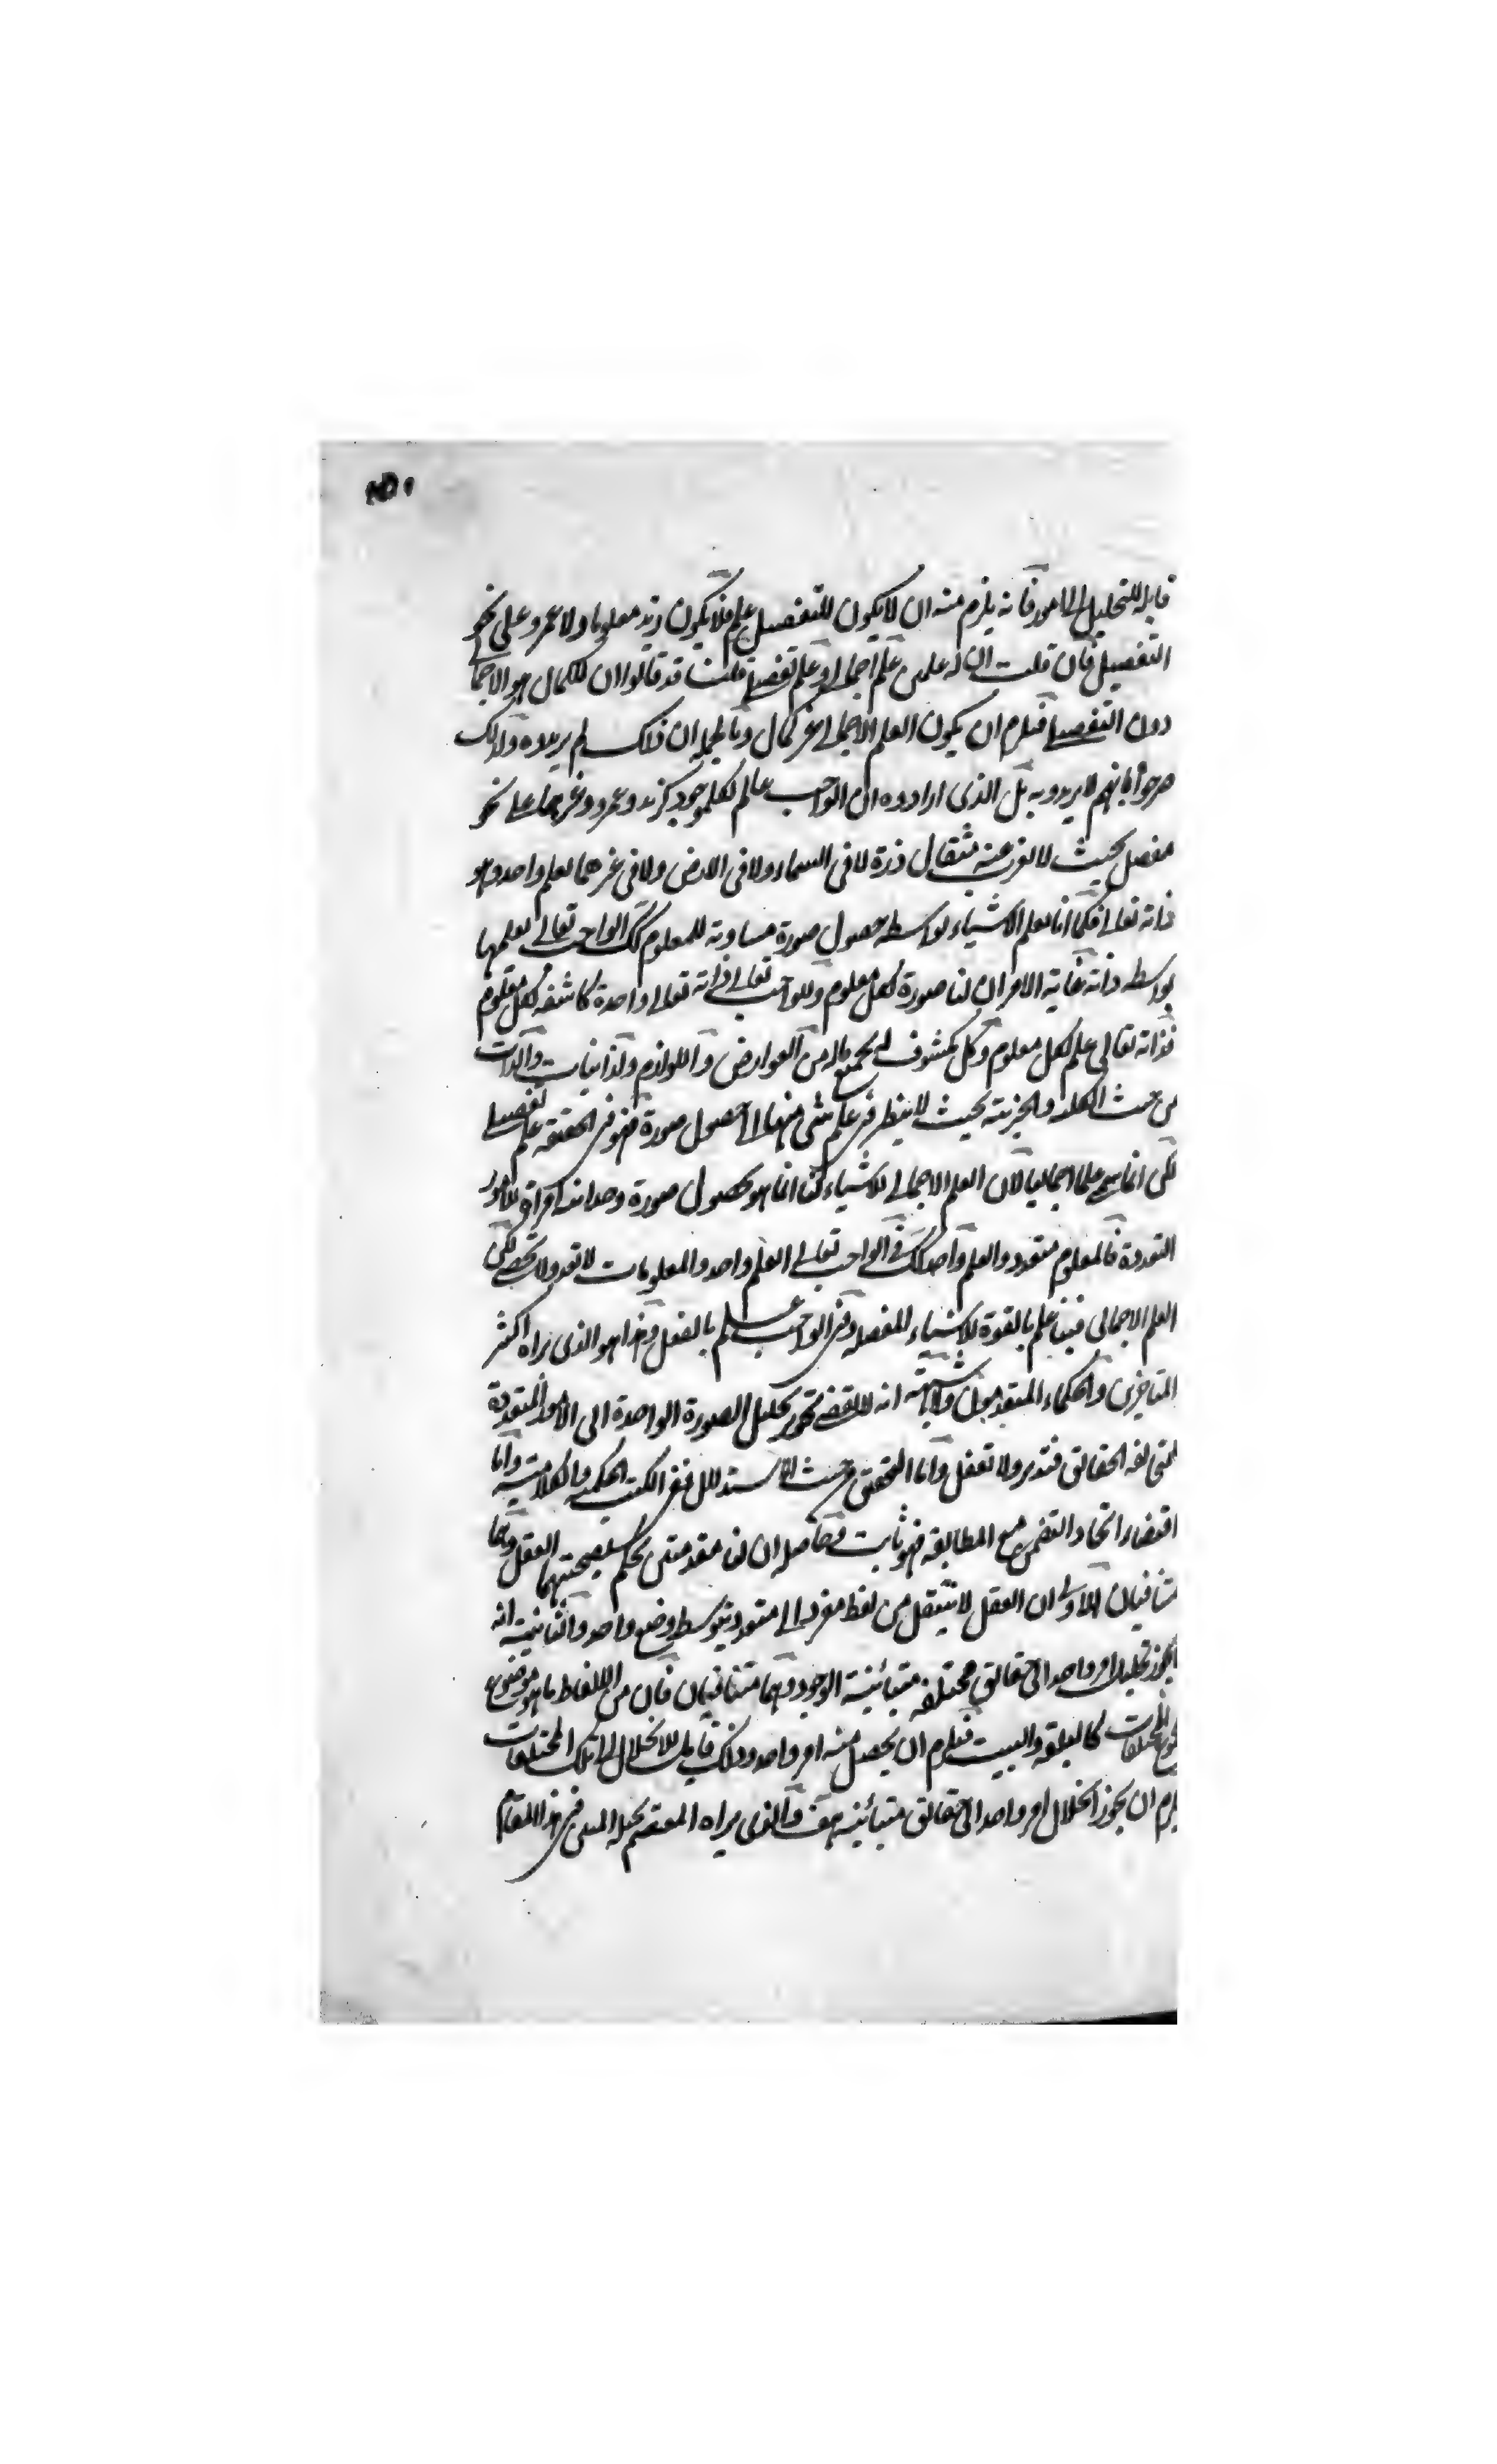 قابلة للتحليل الى امور فانه يلزم منه ان لا يكون للتفصيل علم فلا يكون زيد معلوما ولا عمرو على نحو
التفصيل فان قلت ان له علمين علم اجمالي وعلم تفصيلي قلت قد قالوا ان الكمال هو الاجمالي
دون التفصيلي فيلزم ان يكون العلم الاجمالي غير كمال وبالجملة ان ذلك لم يريدوه ولذلك
صرحوا بانهم لا يريدونه بل الذي ارادوه ان الواجب عالم لكل موجود كزيد وعمرو وغيرهما على نحو
مفصل بحيث لا يعزب عنه مثقال ذرة لا في السماء ولا في الارض ولا في غيرهما بعلم واحد وهو
ذاته تعالى فكما انا نعلم الاشياء بواسطة حصول صورة مساوية للمعلوم كك الواجب تعالى يعلمها
بواسطة ذاته غاية الامر ان لنا صورة لكل معلوم وللواجب تعالى ذاته تعالى واحدة كاشفة لكل معلوم
فذاته تعالى علم لكل معلوم وكل مكشوف له بجميع ماله من العوارض واللوازم والذاتيات والذات
من حيث الكلية والجزئية بحيث لا ينتظر في علم شئ منها الى حصول صورة فهو في الحقيقة علم تفصيلي
لكن انما سمي علما اجماليا لان العلم الاجمالي للاشياء كنا انما هو بحصول صورة وحدانية مرآة للامور
المتعددة فالمعلوم متعدد والعلم واحد كك في الواجب تعالى العلم واحد والمعلومات لا تعد ولا تحصى لكن
العلم الاجمالي فينا علم بالقوة للاشياء المفصلة وفي الواجب علم بالفعل وهذا هو الذي يراه اكثر
المتاخرين والحكماء المتقدمون ولا شبهة انه لا يقتضي تجويز تحليل الصورة الواحدة الى الامور المتعددة
المتخالفة الحقائق فتدبر ولا تغفل واما التحقيق من حيث الاستدلال ففي الكتب الحكمية والكلامية واما
اقتضاء اتحاد التضمن مع المطابقة فهو ثابت وحاصله ان لنا مقدمتين يحكم بصحتهما العقل وهما
متنافيان الاولى ان العقل لا ينتقل من لفظ مفرد الى متعدد بتوسط وضع واحد والثانية انه
لا يجوز تحليل امر واحد الى حقائق مختلفة متبائنة الوجود وهما متنافيان فان من الالفاظ ما هو موضوع
لنوع المختلفات كالبلقة والبيت فيلزم ان يحصل منه امر واحد وذلك قابل للانحلال الى تلك المختلفات
يلزم ان يجوز انحلال امر واحد الى حقائق متبائنة هف والذي يراه المعتصم بحبله المتين في هذا المقام